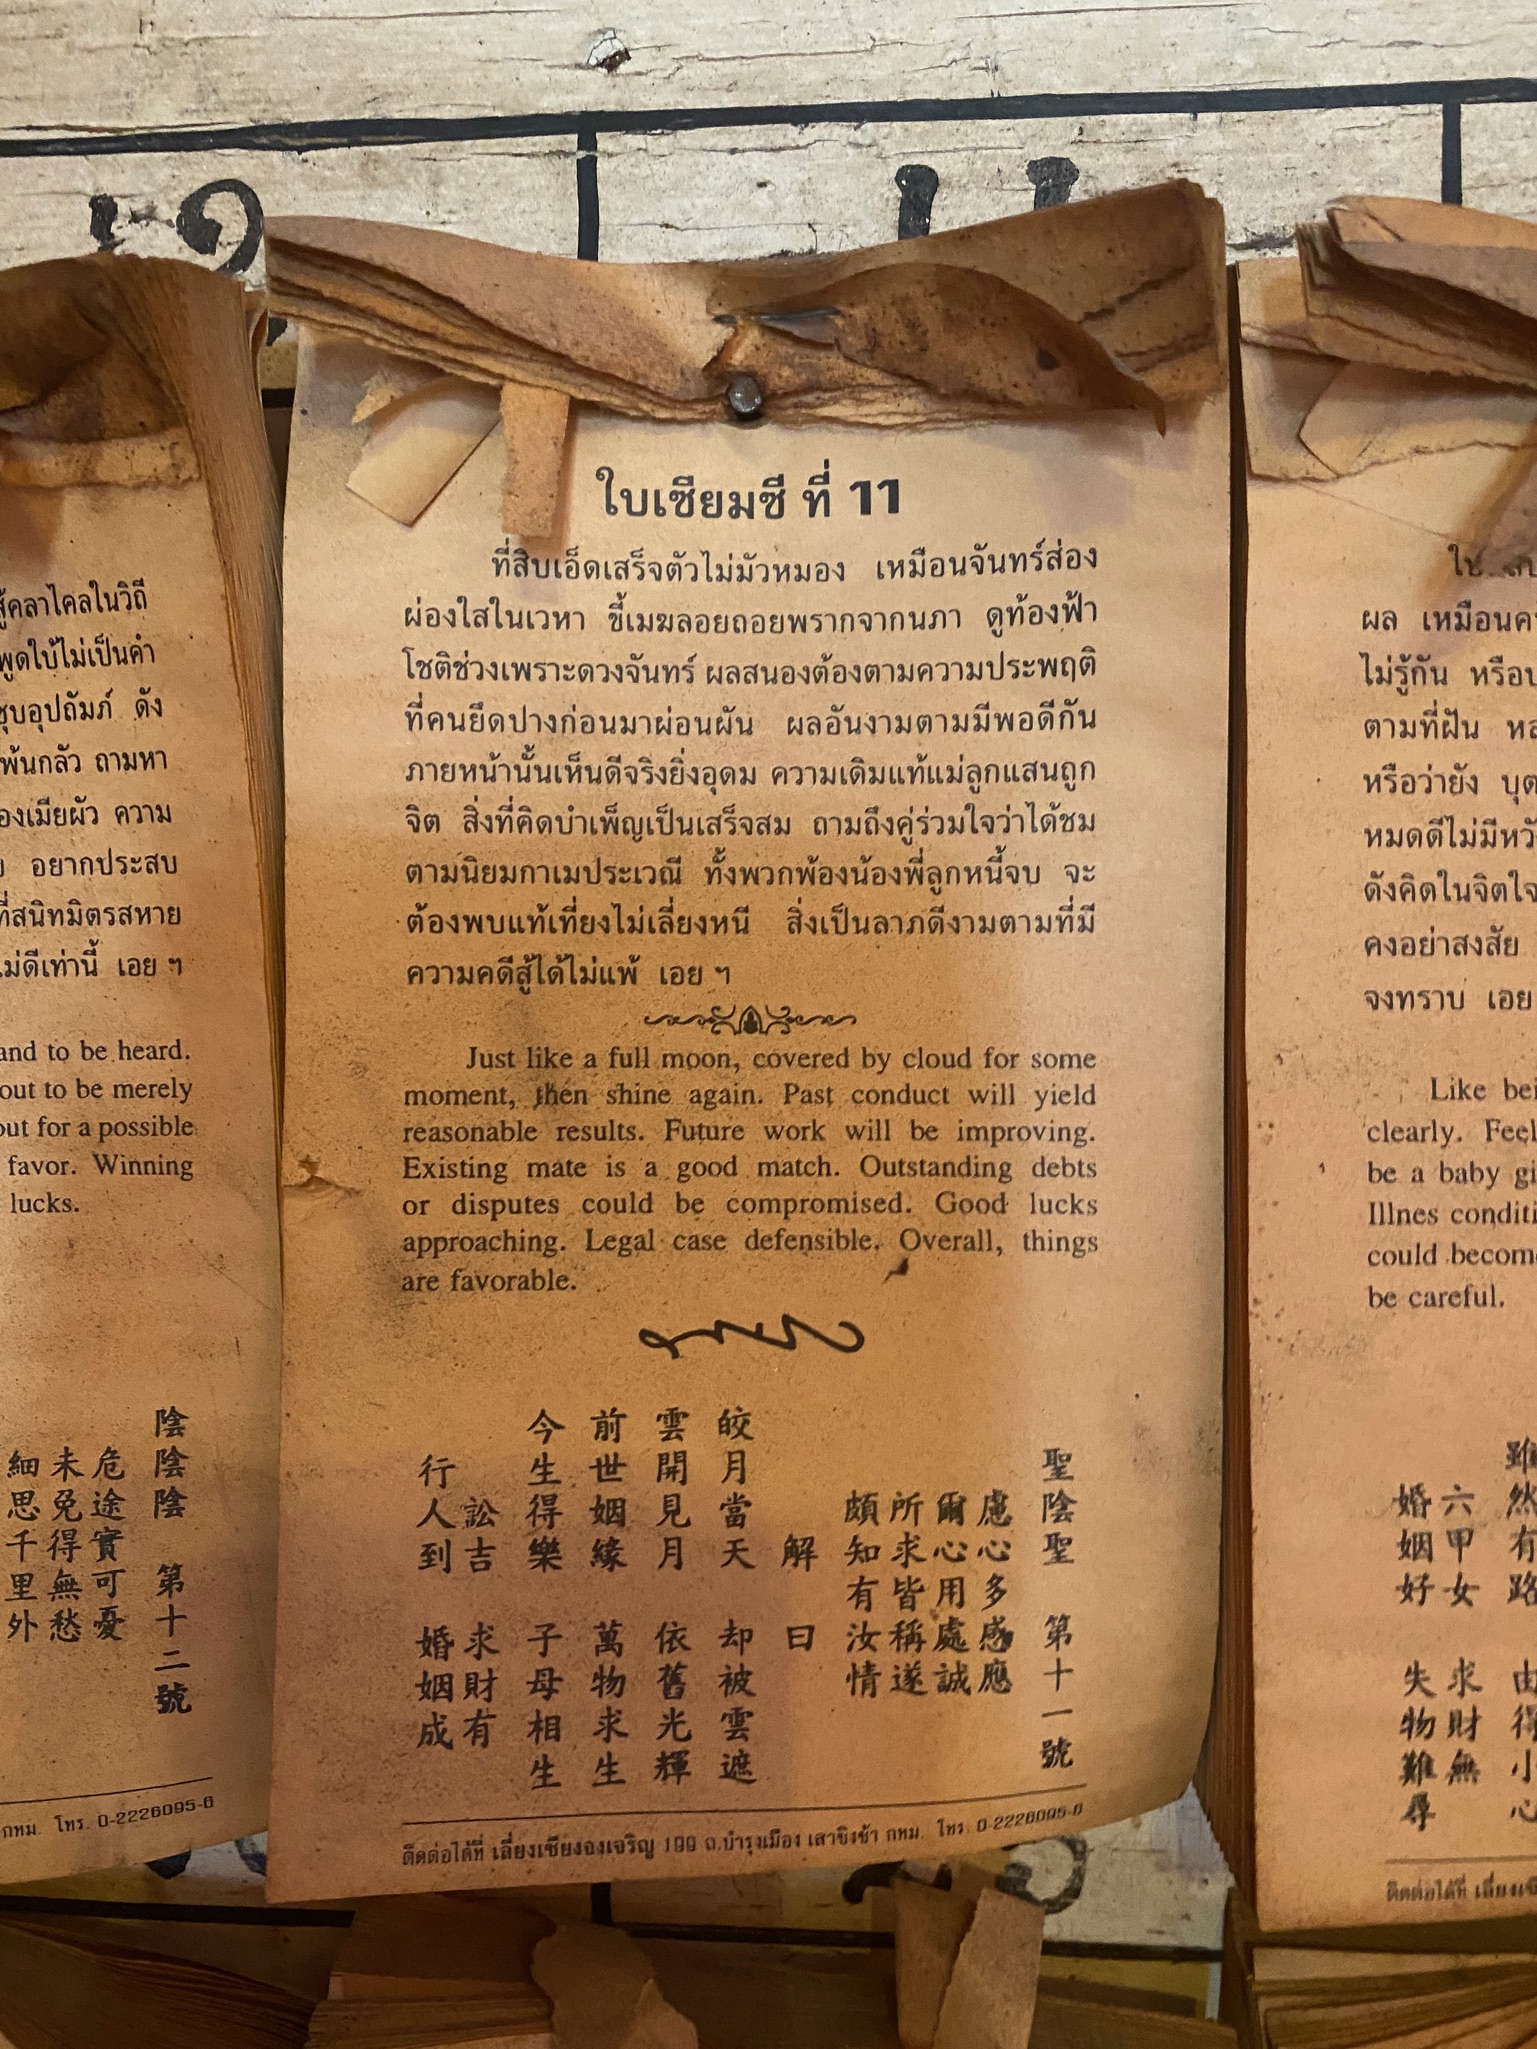 สู้คลาไคลในวิถี
พูดใบ้ไม่เป็นคำ
ชุบอุปถัมภ์ ดัง
พ้นกลัว ถามหา
องเมียผัว ความ
อยากประสบ
ที่สนิทมิตรสหาย
ไม่ดีเท่านี้ เอย ฯ
and to be heard.
out to be merely
out for a possible
favor. Winning
lucks.
陰陰陰 第十二號
危途實可憂
未免得無愁
細思千里外
กทม. โทร. 0-2226095-6
ใบเซียมซี ที่ 11
ที่สิบเอ็ดเสร็จตัวไม่มัวหมอง เหมือนจันทร์ส่อง
ผ่องใสในเวหา ขี้เมฆลอยถอยพรากจากนภา ดูท้องฟ้า
โชติช่วงเพราะดวงจันทร์ ผลสนองต้องตามความประพฤติ
ที่คนยึดปางก่อนมาผ่อนผัน ผลอันงามตามมีพอดีกัน
ภายหน้านั้นเห็นดีจริงยิ่งอุดม ความเดิมแท้แม่ลูกแสนถูก
จิต สิ่งที่คิดบำเพ็ญเป็นเสร็จสม ถามถึงคู่ร่วมใจว่าได้ชม
ตามนิยมกาเมประเวณี ทั้งพวกพ้องน้องพี่ลูกหนี้จบ จะ
ต้องพบแท้เที่ยงไม่เลี่ยงหนี สิ่งเป็นลาภดีงามตามที่มี
ความคดีสู้ได้ไม่แพ้ เอย ฯ
Just like a full moon, covered by cloud for some
moment, then shine again. Past conduct will yield
reasonable results. Future work will be improving.
Existing mate is a good match. Outstanding debts
or disputes could be compromised. Good lucks
approaching. Legal case defensible. Overall, things
are favorable.
聖陰聖 第十一號
慮心多感應
爾心用處誠
所求皆稱遂
頗知有汝情
解曰
皎月當天 却被雲遮
雲開見月 依舊光輝
前世姻緣 萬物求生
今生得樂 子母相生
訟吉 求財有
行人到 婚姻成
ติดต่อได้ที่ เลี่ยงเซียงจงเจริญ 199 ถ.บำรุงเมือง เสาชิงช้า กทม. โทร. 0-2226095-6
ผล เหมือนค
ไม่รู้กัน หรือ
ตามที่ฝัน
หรือว่ายัง บุต
หมดดีไม่มีหวั
ดังคิดในจิตใจ
คงอย่าสงสัย
จงทราบ เอย
Like bei
clearly. Feel
be a baby gi
Illnes conditi
could become
be careful.
雖然有路 由得小心
六甲女 求財無
婚姻好 失物難尋
ติดต่อได้ที่ เลี่ยงเซี